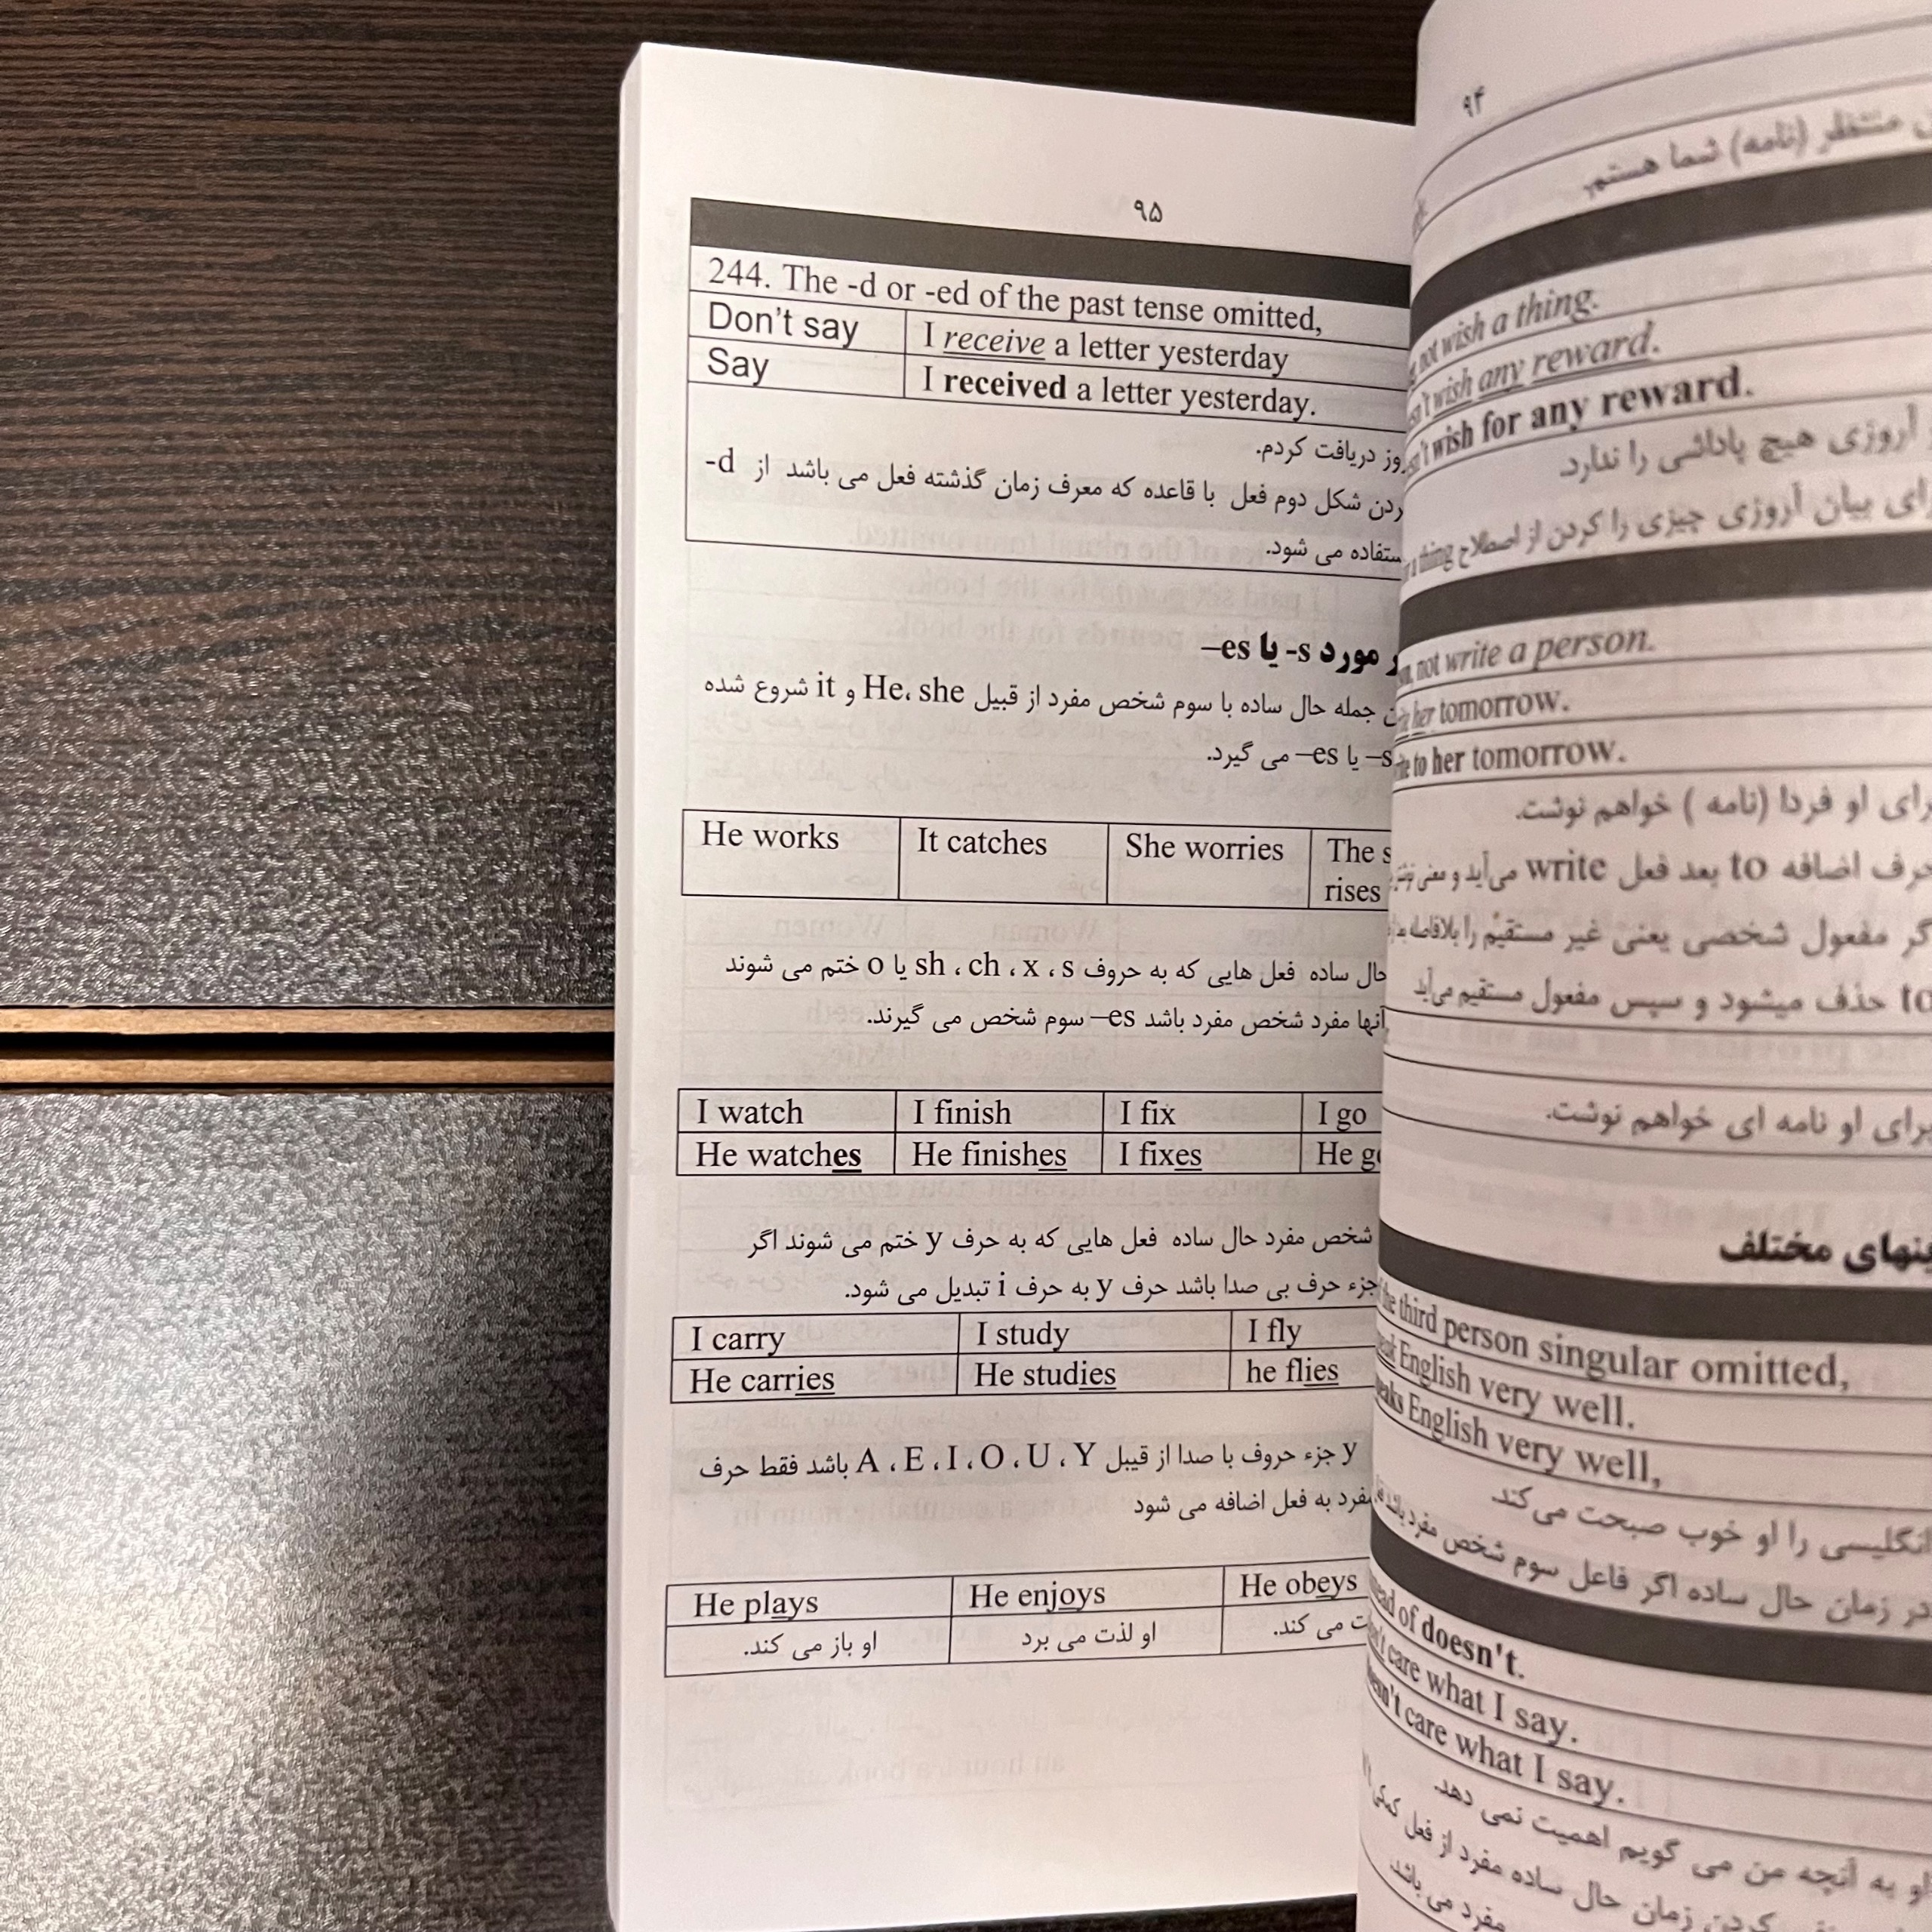 ۹۵
244. The -d or -ed of the past tense omitted,
Don't say I receive a letter yesterday
Say I received a letter yesterday.
دریافت کردم.
شکل دوم فعل با قاعده که معرف زمان گذشته فعل می باشد از -d
می شود.
مورد s- یا es–
جمله حال ساده با سوم شخص مفرد از قبیل He، she و it شروع شده
s– یا es– می گیرد.
He works It catches She worries The
rises
حال ساده فعل هایی که به حروف sh ، ch ، x ، s یا o ختم می شوند
آنها مفرد شخص مفرد باشد es– سوم شخص می گیرند.
I watch I finish I fix I go
He watches He finishes I fixes He
شخص مفرد حال ساده فعل هایی که به حرف y ختم می شوند اگر
جزء حرف بی صدا باشد حرف y به حرف i تبدیل می شود.
I carry I study I fly
He carries He studies he flies
y جزء حروف با صدا از قیبل A ، E ،I ،O ، U ، Y باشد فقط حرف
مفرد به فعل اضافه می شود
He plays He enjoys He obeys
او باز می کند. او لذت می برد می کند.
۹۴
منتظر (نامه) شما هستم.
not wish a thing.
wish any reward.
wish for any reward.
آروزی هیچ پاداشی را ندارد.
بیان آروزی چیزی را کردن از اصطلاح thing
not write a person.
her tomorrow.
to her tomorrow.
برای او فردا (نامه ) خواهم نوشت.
حرف اضافه to بعد فعل write می‌آید و معنی
مفعول شخصی یعنی غیر مستقیم را بلافاصله
to حذف میشود و سپس مفعول مستقیم می‌آید
برای او نامه ای خواهم نوشت.
مختلف
the third person singular omitted,
English very well.
English very well,
انگلیسی را او خوب صبحت می‌کند.
در زمان حال ساده اگر فاعل سوم شخص مفرد باشد
of doesn't.
care what I say.
care what I say.
او به آنچه من می گویم اهمیت نمی دهد.
کردن زمان حال ساده مفرد از فعل کمکی
مفرد می باشد.